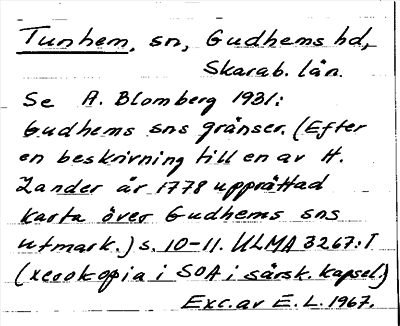 Tunhem, sn, Gudhems hd,
Skarab. län.
Se A. Blomberg 1931:
Gudhems sns gränser. (Efter
en beskrivning till en av H.
Zander år 1778 upprättad
karta över Gudhems sns
utmark.) s. 10-11. ULMA 3267:1
(xerokopia i SOA i särsk. kapsel.)
Exc. av E. L. 1967.